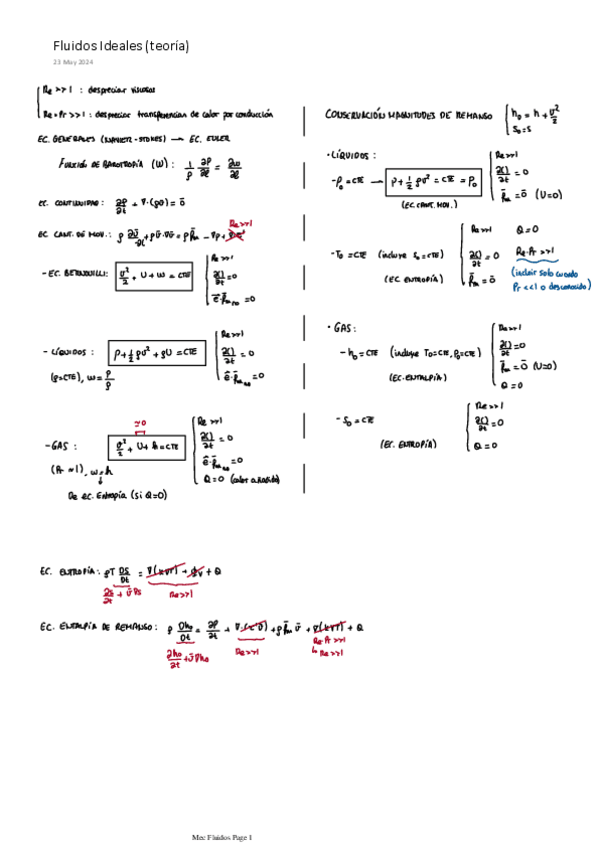 Fluidos Ideales (teoría)
23 May 2024
Re >> 1 : despreciar viscosos
Re·Pr >> 1 : despreciar transferencias de calor por conducción
EC. GENERALES (NAVIER-STOKES) → EC. EULER
FUNCIÓN DE BAROTROPÍA (W) : 1/ρ ∂P/∂l = ∂w/∂l
EC. CONTINUIDAD : ∂ρ/∂t + ∇·(ρv̄) = 0
Re>>1
EC. CANT. DE MOV. :
- EC. BERNOUILLI : v²/2 + U + w = CTE
Re >> 1
∂()/∂t = 0
- LÍQUIDOS : P + 1/2 ρv² + ρU = CTE
(ρ=CTE), w = P/ρ
Re >> 1
∂()/∂t = 0
≈0
- GAS : v²/2 + U + h = CTE
w = h
Re >> 1
∂()/∂t = 0
Q = 0
De ec. Entropía (si Q=0)
CONSERVACIÓN MAGNITUDES DE REMANSO
h₀ = h + v²/2
S₀ = S
· LÍQUIDOS :
- P₀ = CTE → P + 1/2 ρv² = CTE = P₀
(EC. CANT. MOV.)
Re >> 1
∂()/∂t = 0
f̄m = 0̄ (U=0)
- T₀ = CTE (incluye S₀ = CTE)
(EC. ENTROPÍA)
Re >> 1 Q = 0
∂()/∂t = 0 Re·Pr >> 1
f̄m = 0̄
(incluir solo cuando
Pr << 1 o desconocido)
· GAS :
- h₀ = CTE (incluye T₀ = CTE, P₀ = CTE)
(EC. ENTALPÍA)
Re >> 1
∂()/∂t = 0
f̄m = 0̄ (U=0)
Q = 0
- S₀ = CTE
(EC. ENTROPÍA)
Re >> 1
∂()/∂t = 0
Q = 0
EC. ENTROPÍA : ρT DS/Dt = ∇(k∇T) + ϕv + Q
∂S/∂t + v̄∇S
Re >> 1
EC. ENTALPÍA DE REMANSO : ρ Dh₀/Dt = ∂P/∂t + ∇·(τ·v̄) + ρf̄m v̄ + ∇(k∇T) + Q
∂h₀/∂t + v̄∇h₀
Re >> 1
Re·Pr >> 1
↳ Re >> 1
Mec Fluidos Page 1